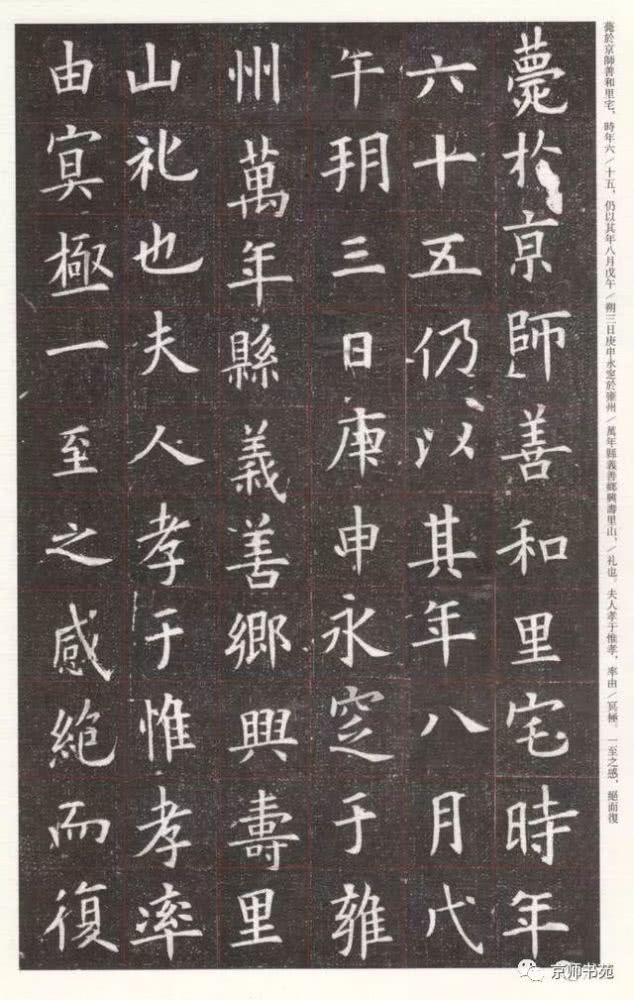 薨於京師善和里宅，時年六／十五，仍以其年八月戊午／朔三日庚申永窆於雍州／萬年縣義善鄉興壽里山，／礼也。夫人孝于惟孝，率由／冥極。一至之感，絕而復
薨於京師善和里宅時年
六十五仍以其年八月戊
午朔三日庚申永窆于雍
州萬年縣義善鄉興壽里
山礼也夫人孝于惟孝率
由冥極一至之感絕而復
京师书苑